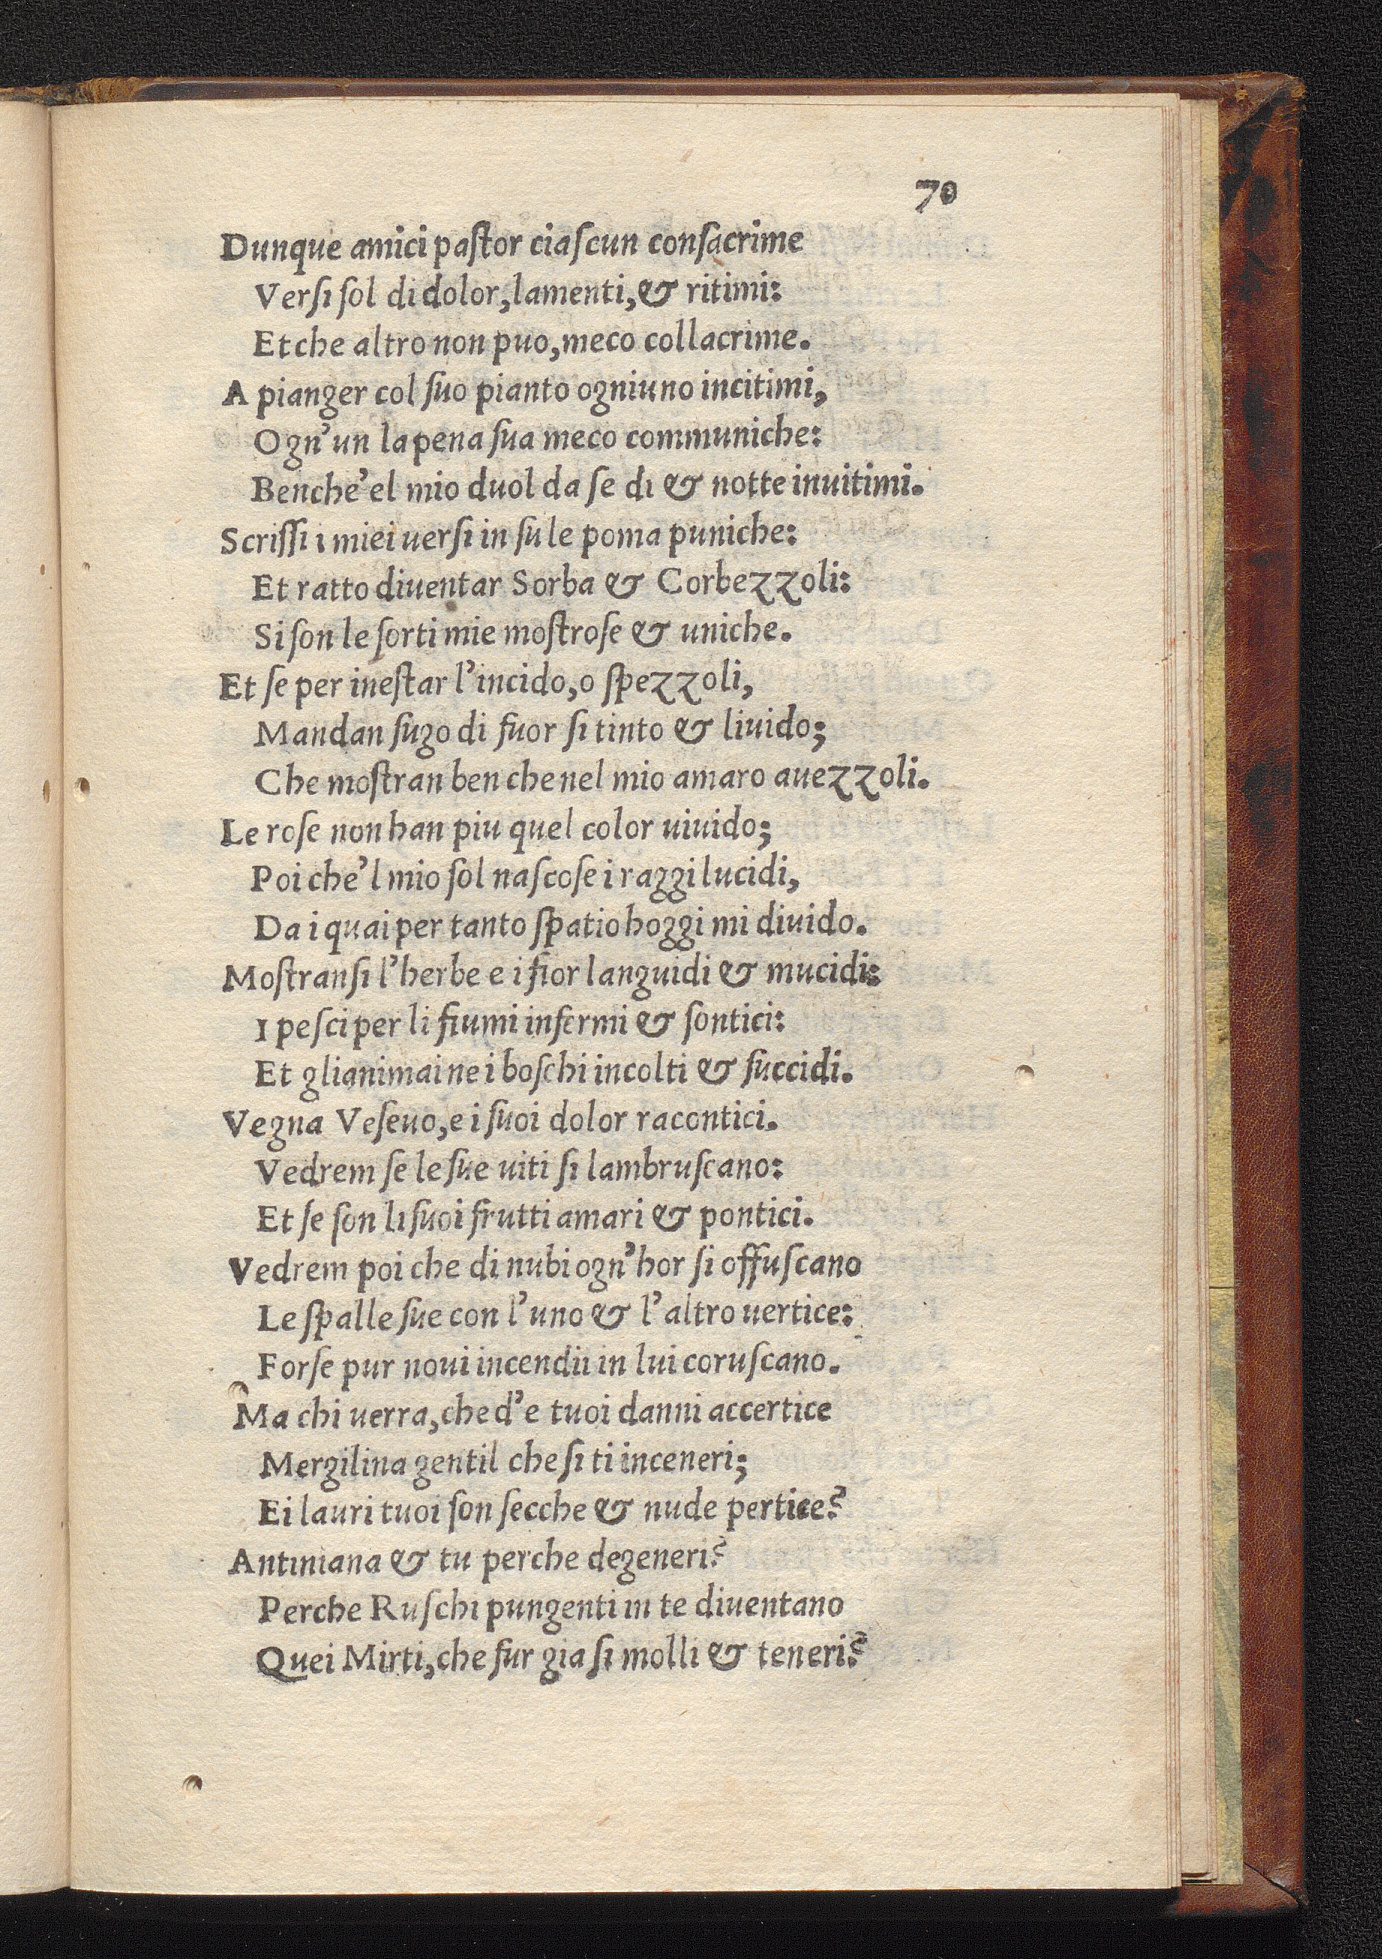 70
Dunque amici paſtor ciaſcun conſacrime
Verſi ſol di dolor, lamenti, & ritimi:
Et che altro non puo, meco collacrime.
A pianger col ſuo pianto ogniuno incitimi,
Ogn'un la pena ſua meco communiche:
Benche'el mio duol da ſe di & notte inuitimi.
Scriſſi i miei uerſi in ſu le poma puniche:
Et ratto diuentar Sorba & Corbezzoli:
Si ſon le ſorti mie moſtroſe & uniche.
Et ſe per ineſtar l'incido, o ſpezzoli,
Mandan ſugo di fuor ſi tinto & liuido;
Che moſtran ben che nel mio amaro auezzoli.
Le roſe non han piu quel color uiuido;
Poi che'l mio ſol naſcoſe i raggi lucidi,
Da i quai per tanto ſpatio hoggi mi diuido.
Moſtranſi l'herbe e i fior languidi & mucidi:
I peſci per li fiumi infermi & ſontici:
Et glianimai ne i boſchi incolti & ſuccidi.
Vegna Veſeuo, e i ſuoi dolor racontici.
Vedrem ſe le ſue uiti ſi lambruſcano:
Et ſe ſon li ſuoi frutti amari & pontici.
Vedrem poi che di nubi ogn'hor ſi offuſcano
Le ſpalle ſue con l'uno & l'altro uertice:
Forſe pur noui incendii in lui coruſcano.
Ma chi uerra, che d'e tuoi danni accertice
Mergilina gentil che ſi ti inceneri;
Ei lauri tuoi ſon ſecche & nude pertice?
Antiniana & tu perche degeneri?
Perche Ruſchi pungenti in te diuentano
Quei Mirti, che fur gia ſi molli & teneri?